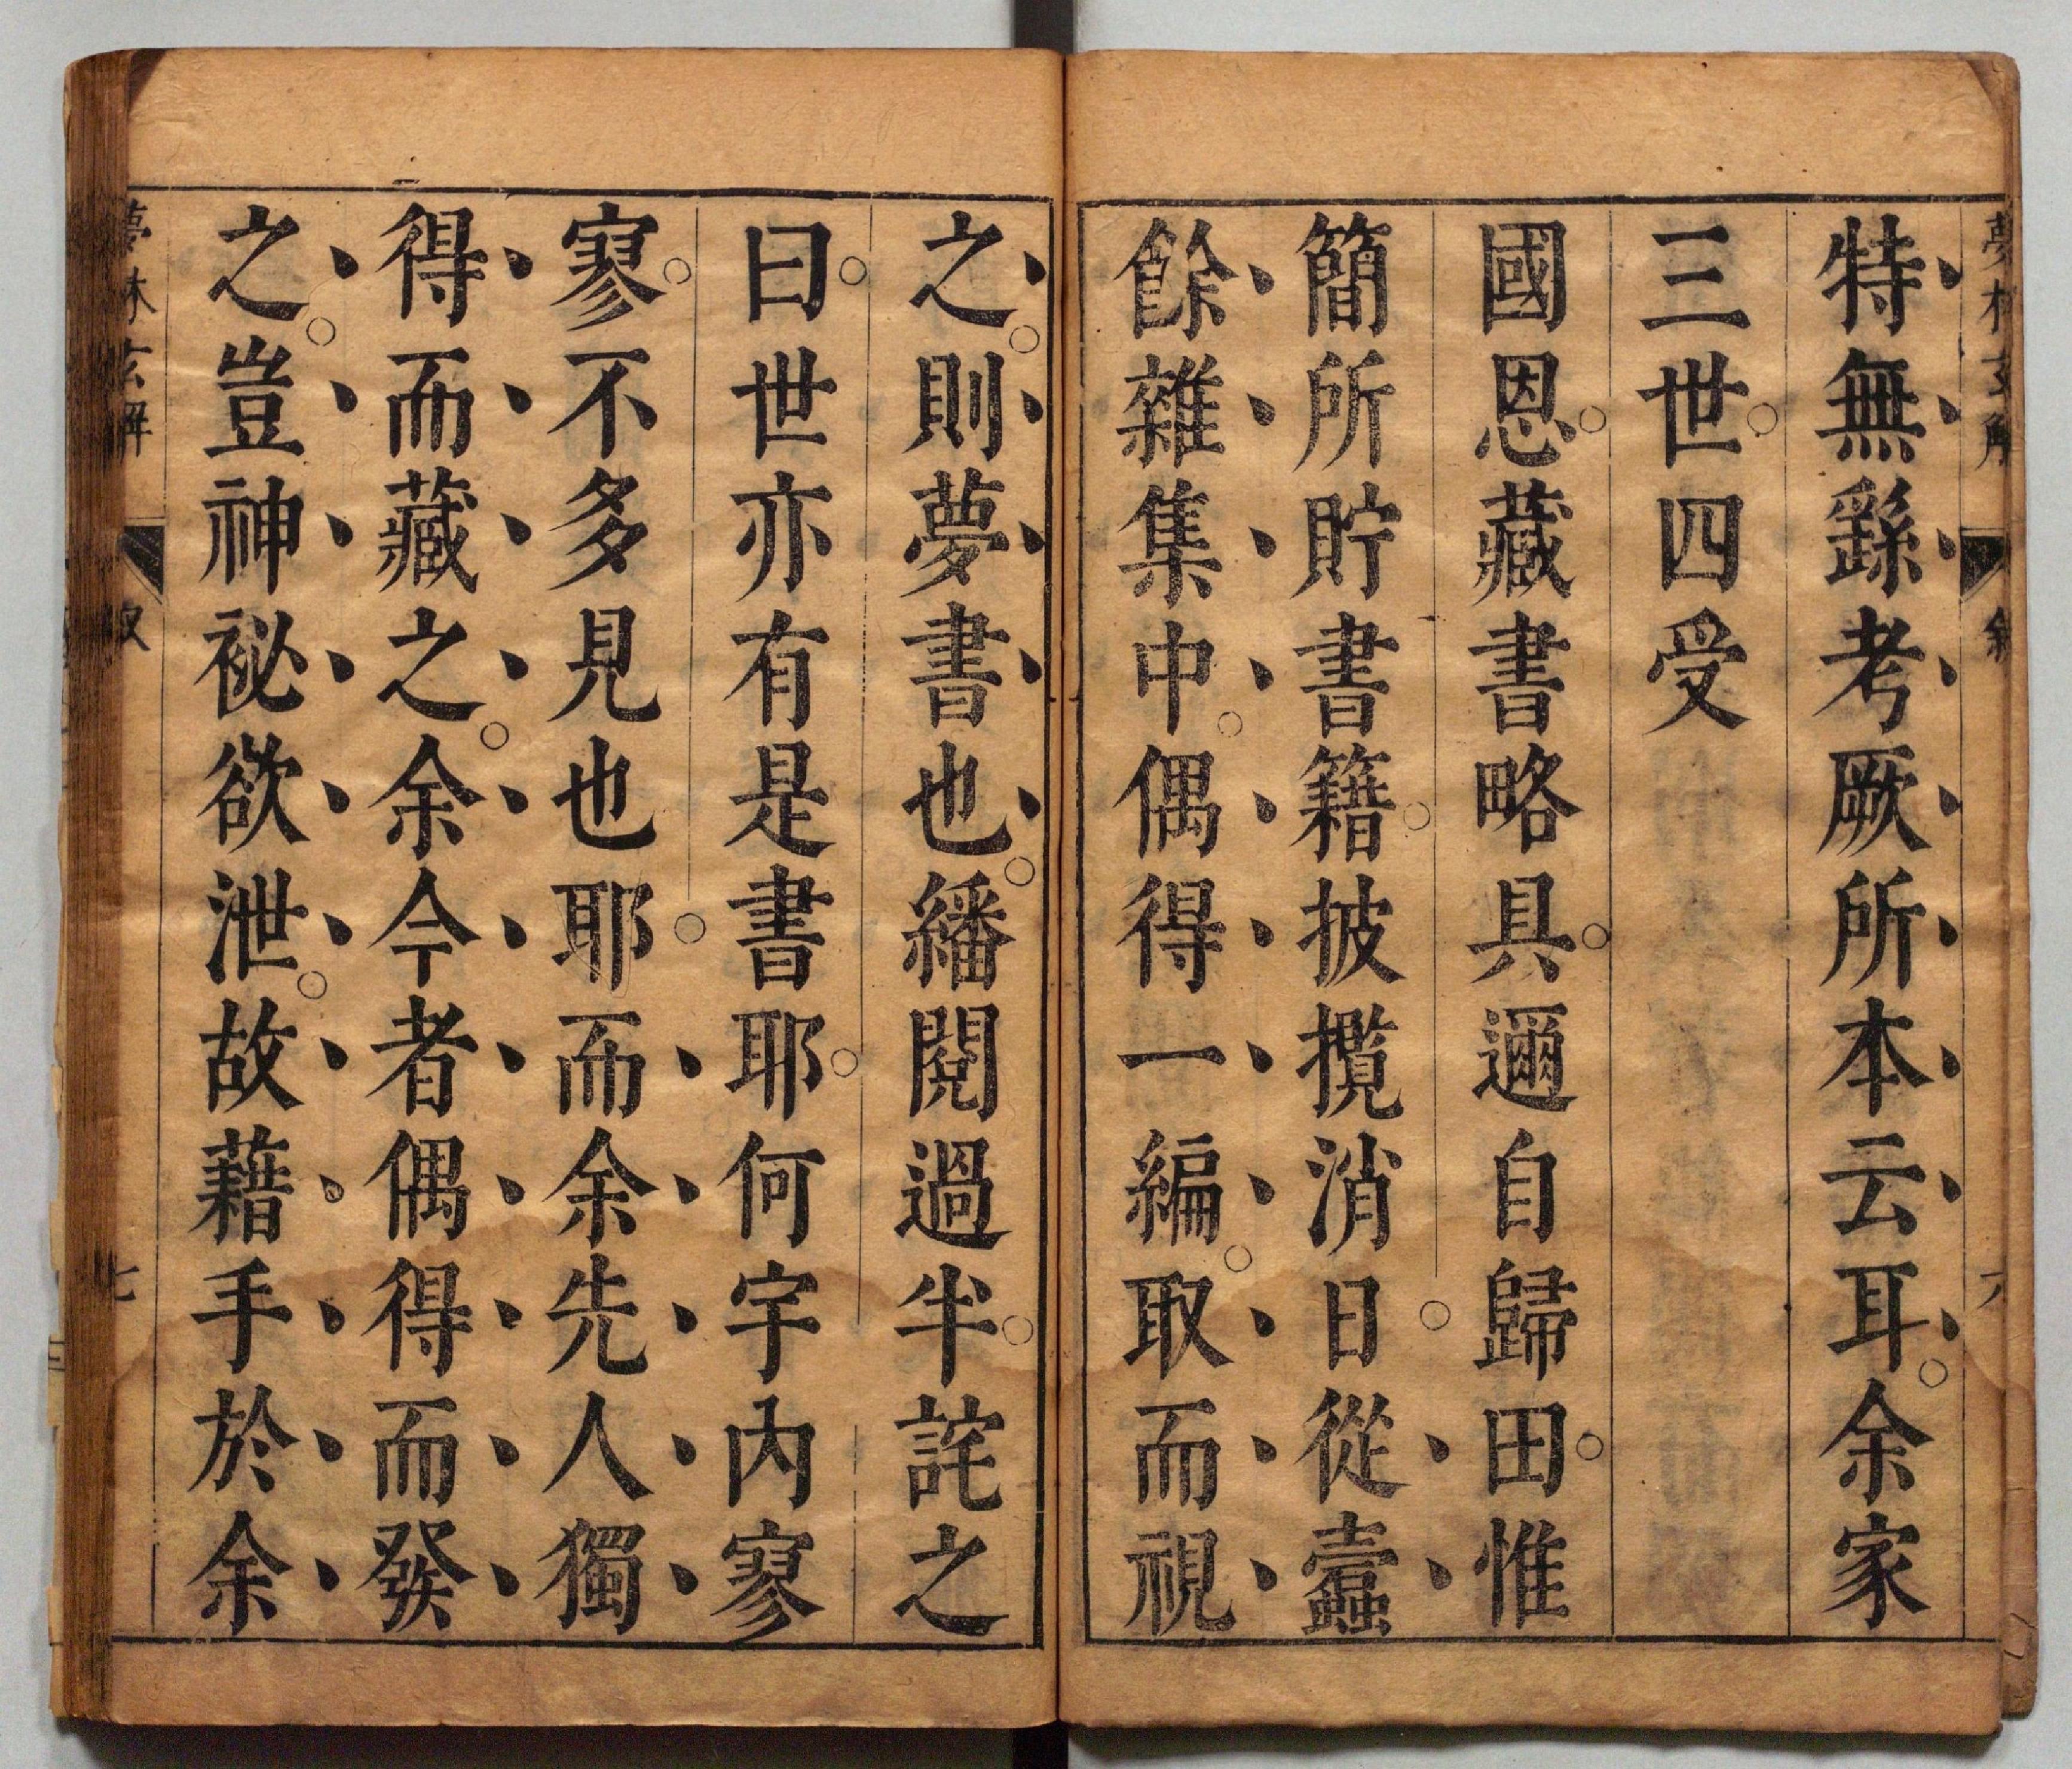 特無繇考厥所本云耳余家
三世四受
國恩藏書略具邇自歸田惟
簡所貯書籍披攬消日從蠹
餘雜集中偶得一編取而視
之則夢書也繙閱過半詫之
曰世亦有是書耶何宇內寥
寥不多見也耶而余先人獨
得而藏之余今者偶得而發
之豈神祕欲泄故藉手於余
夢林玄解
七